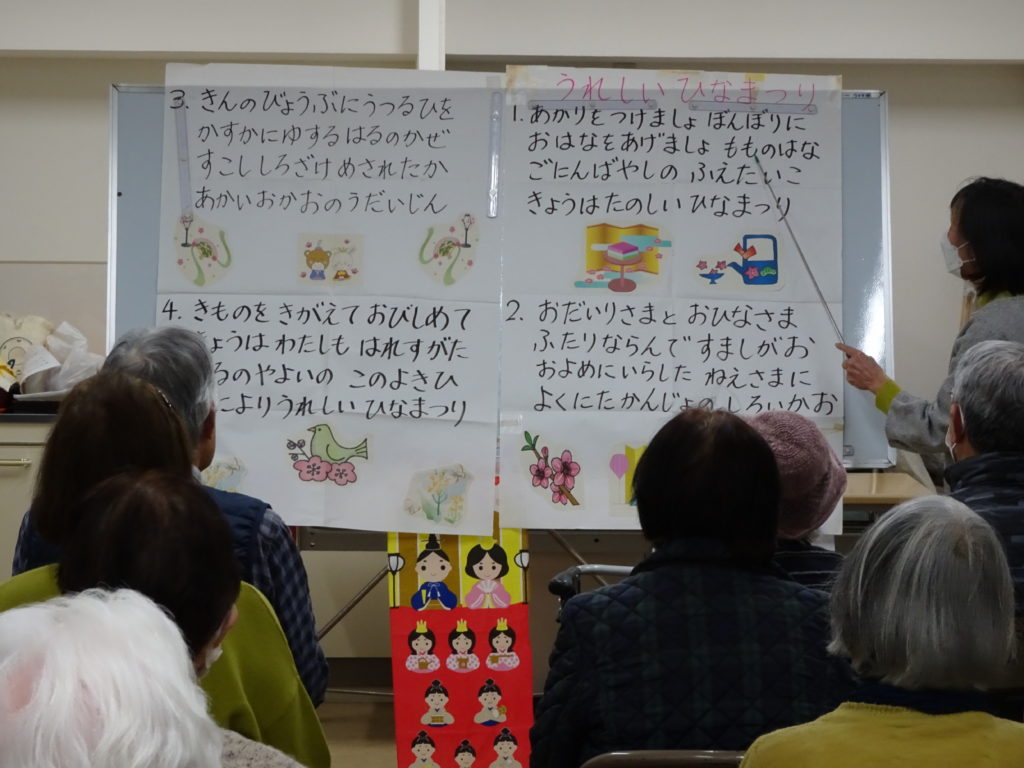 うれしい ひなまつり
1. あかりをつけましょ ぼんぼりに
おはなをあげましょ もものはな
ごにんばやしの ふえたいこ
きょうはたのしい ひなまつり
2. おだいりさまと おひなさま
ふたりならんで すましがお
およめにいらした ねえさまに
よくにたかんじょの しろいかお
3. きんのびょうぶにうつるひを
かすかにゆするはるのかぜ
すこししろざけ めされたか
あかいおかおのうだいじん
4. きものを きがえて おびしめて
ょうは わたしも はれすがた
るのやよいの このよきひ
によりうれしい ひなまつり